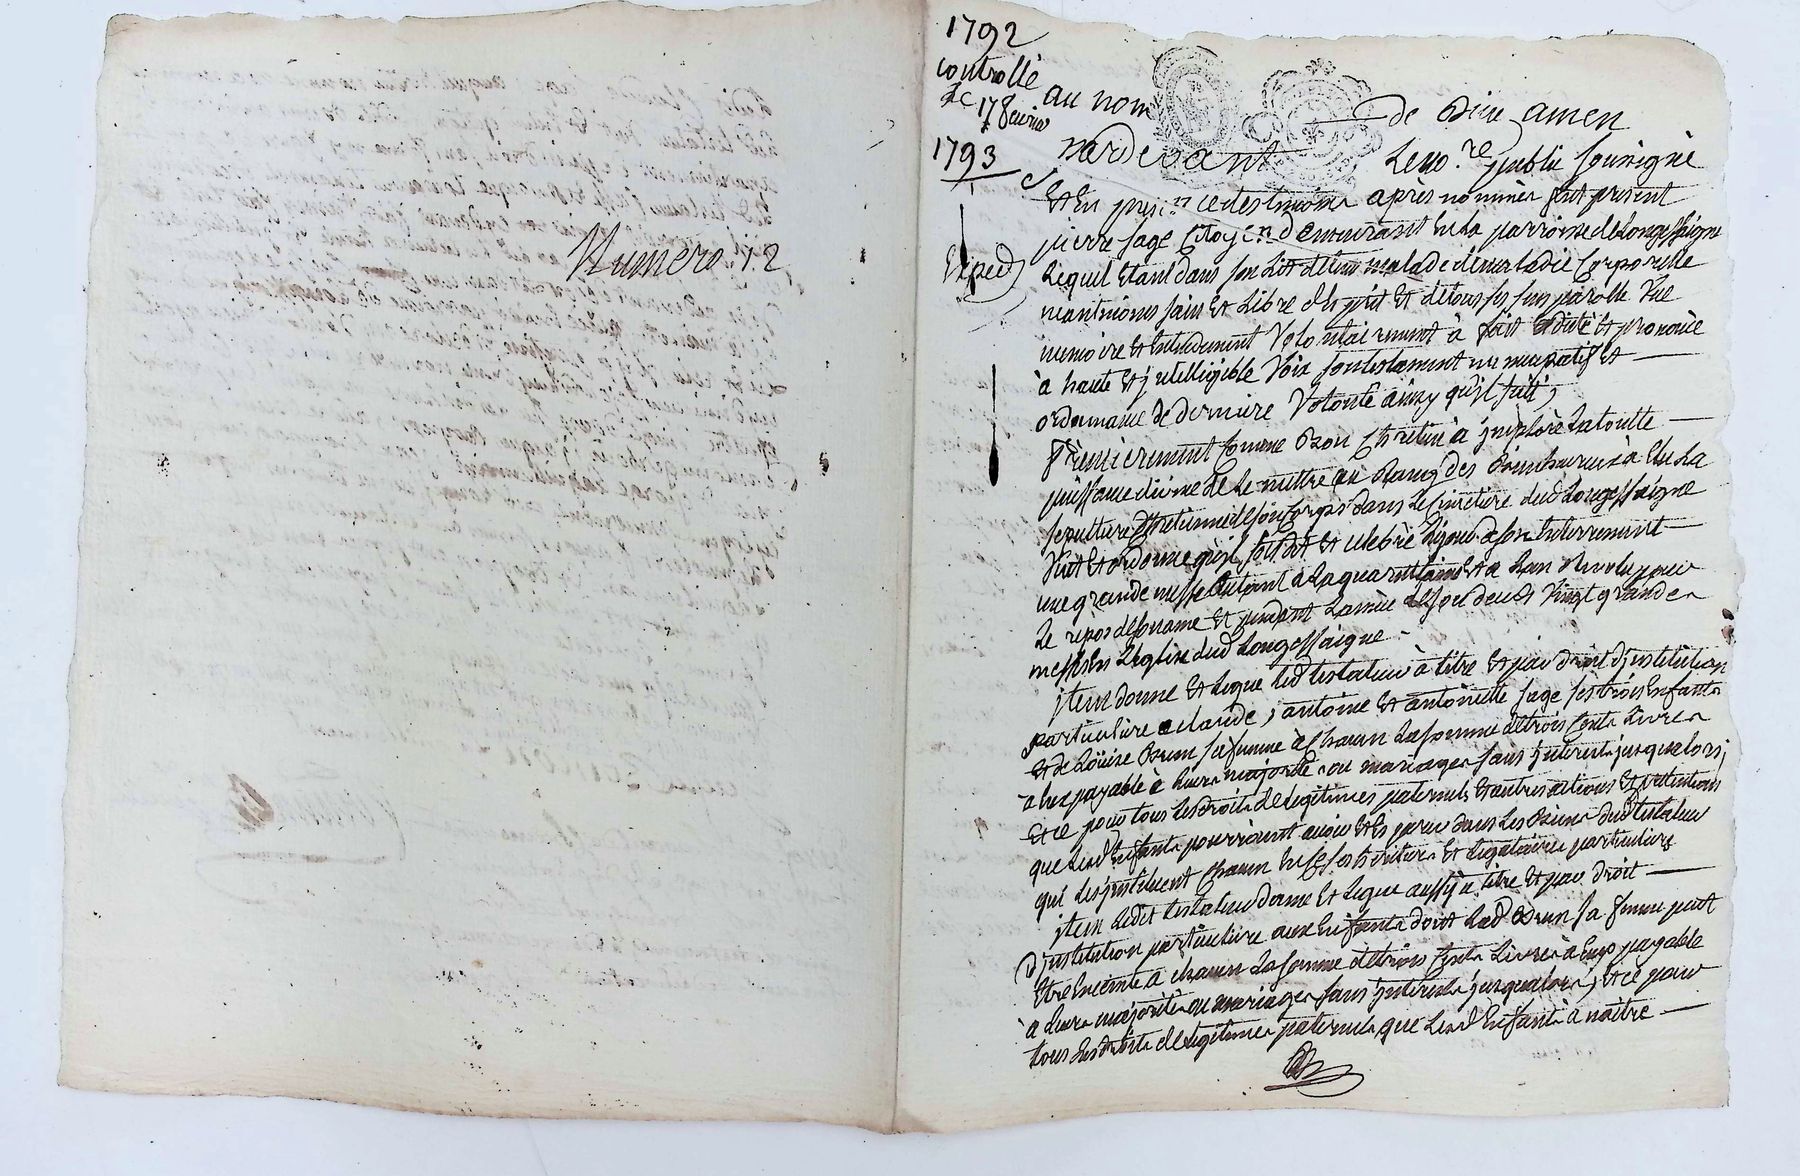 Numero 12
1792
controllé
le 17 février
1793
Exped
au nom de Dieu amen
Pardevant Le no.re public soussigné
Et En presence des temoins après nommés fut present
pierre sage Citoyen demeurant En La parroisse de Longessaigne
Lequel Etant dans son Lit detenu malade de maladie Corporelle
neantmoins sain Et Libre d'Esprit Et de tous ses sens parolle Vüe
memoire et Entendement Volontairement à fait Edicté Et prononcé
à haute Et jntelligible Voix son testament nuncupatif et
ordonnance de derniere Volonté ainsy qu'jl suit;
Premierement Comme Bon Chretien à jmploré La toutte
puissance divine de Le mettre au Rang des Bienheureux à Elu La
sepulture de son Corps dans Le Cimetiere dud Longessaigne
Veut Et ordonne qu'jl soit dit Et celebré Le jour de son Enterrement
une grande messe autant à La quarantaine Et a L'an Revolu pour
Le repos de son ame Et pendant L'année de son deceds Vingt grandes
messes En L'Eglise dud Longessaigne.
jtem donne Et Legue Led testateur à titre Et par droit d'jnstitution
particuliere a Claude, antoine Et antoinette sage ses trois Enfants
Et de Loüise Brun sa femme à Chacun La somme de trois Cents Livres
à Eux payable à Leurs majorité ou mariages sans jnterests jusqu'alors;
Et ce pour tous Les droits de Legitimes paternels Et autres actions Et pretentions
que Lesd Enfants pourroient avoir Et Esperer dans Les Biens dud testateur
qui Les jnstituent Chacun En ce ses heritiers Et Legataires particuliers
jtem Ledit testateur donne Et Legue aussy à titre Et par droit
d'jnstitution particuliere aux Enfants dont Lad Brun sa femme peut
Etre Enceinte a chacun La somme de trois Cents Livres à Eux payable
à Leurs majorités ou mariages sans jnterests jusqu'alors; Et ce pour
tous Les droits de Legitimes paternels que Lesd Enfants à naître